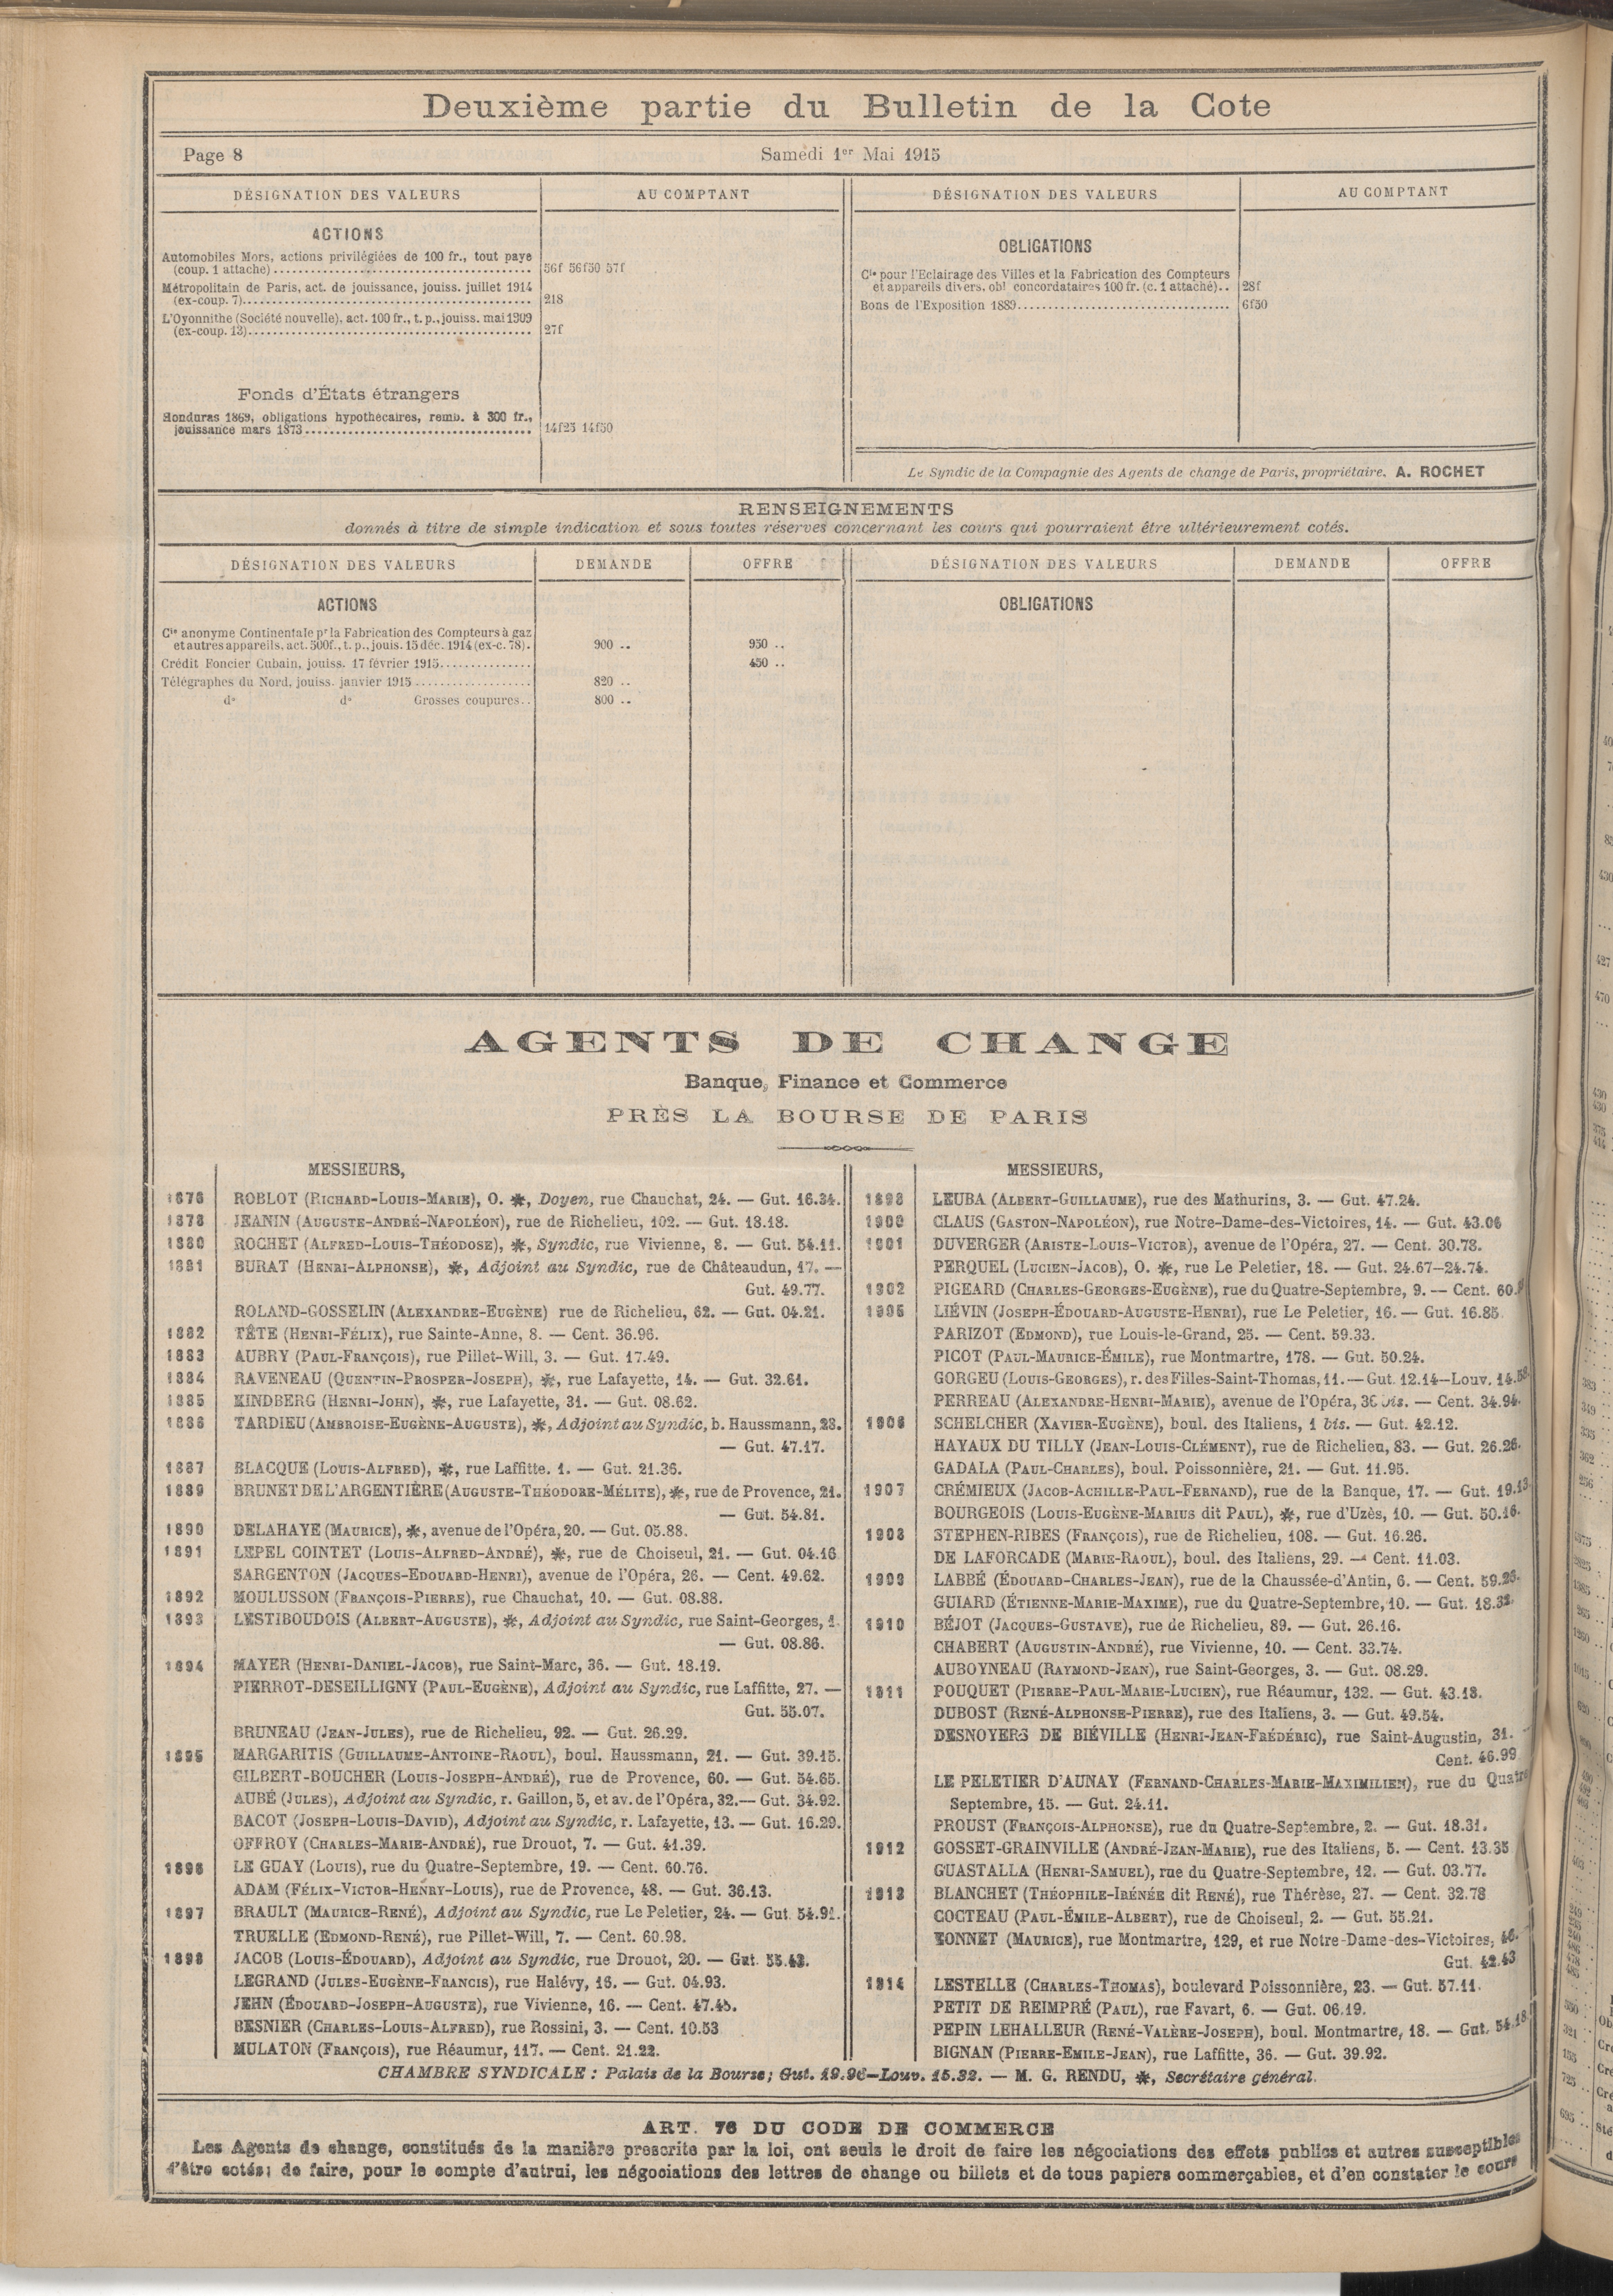 Deuxième partie du Bulletin de la Cote
Page 8
Samedi 1er Mai 1915
DÉSIGNATION DES VALEURS
AU COMPTANT
ACTIONS
Automobiles Mors, actions privilégiées de 100 fr., tout payé
(coup. 1 attaché) 56f 56f50 57f
Métropolitain de Paris, act. de jouissance, jouiss. juillet 1914
(ex-coup. 7) 218
L'Oyonnithe (Société nouvelle), act. 100 fr., t. p., jouiss. mai 1909
(ex-coup. 13) 27f
Fonds d'États étrangers
Honduras 1869, obligations hypothécaires, remb. à 300 fr.,
jouissance mars 1873 14f25 14f50
DÉSIGNATION DES VALEURS
AU COMPTANT
OBLIGATIONS
Cie pour l'Eclairage des Villes et la Fabrication des Compteurs
et appareils divers, obl. concordataires 100 fr. (c. 1 attaché).. 28f
Bons de l'Exposition 1889 6f50
Le Syndic de la Compagnie des Agents de change de Paris, propriétaire. A. ROCHET
RENSEIGNEMENTS
donnés à titre de simple indication et sous toutes réserves concernant les cours qui pourraient être ultérieurement cotés.
DÉSIGNATION DES VALEURS
DEMANDE
OFFRE
ACTIONS
Cie anonyme Continentale pr la Fabrication des Compteurs à gaz
et autres appareils, act. 500f., t. p., jouis. 15 déc. 1914 (ex-c. 78). 900 .. 950 ..
Crédit Foncier Cubain, jouiss. 17 février 1915 450 ..
Télégraphes du Nord, jouiss. janvier 1915 820 ..
do do Grosses coupures.. 800 ..
DÉSIGNATION DES VALEURS
DEMANDE
OFFRE
OBLIGATIONS
AGENTS DE CHANGE
Banque, Finance et Commerce
PRÈS LA BOURSE DE PARIS
MESSIEURS,
ROBLOT (RICHARD-LOUIS-MARIE), O. ✻, Doyen, rue Chauchat, 24. — Gut. 16.34.
1878 JEANIN (AUGUSTE-ANDRÉ-NAPOLÉON), rue de Richelieu, 102. — Gut. 18.18.
1880 ROCHET (ALFRED-LOUIS-THÉODOSE), ✻, Syndic, rue Vivienne, 8. — Gut. 54.11.
1881 BURAT (HENRI-ALPHONSE), ✻, Adjoint au Syndic, rue de Châteaudun, 17. —
Gut. 49.77.
ROLAND-GOSSELIN (ALEXANDRE-EUGÈNE) rue de Richelieu, 62. — Gut. 04.21.
1882 TÊTE (HENRI-FÉLIX), rue Sainte-Anne, 8. — Cent. 36.96.
1883 AUBRY (PAUL-FRANÇOIS), rue Pillet-Will, 3. — Gut. 17.49.
1884 RAVENEAU (QUENTIN-PROSPER-JOSEPH), ✻, rue Lafayette, 14. — Gut. 32.61.
1885 KINDBERG (HENRI-JOHN), ✻, rue Lafayette, 31. — Gut. 08.62.
1886 TARDIEU (AMBROISE-EUGÈNE-AUGUSTE), ✻, Adjoint au Syndic, b. Haussmann, 23.
— Gut. 47.17.
1887 BLACQUE (LOUIS-ALFRED), ✻, rue Laffitte. 1. — Gut. 21.36.
1889 BRUNET DE L'ARGENTIÈRE (AUGUSTE-THÉODORE-MÉLITE), ✻, rue de Provence, 21.
— Gut. 54.81.
1890 DELAHAYE (MAURICE), ✻, avenue de l'Opéra, 20. — Gut. 05.88.
1891 LEPEL COINTET (LOUIS-ALFRED-ANDRÉ), ✻, rue de Choiseul, 21. — Gut. 04.16
SARGENTON (JACQUES-EDOUARD-HENRI), avenue de l'Opéra, 26. — Cent. 49.62.
1892 MOULUSSON (FRANÇOIS-PIERRE), rue Chauchat, 10. — Gut. 08.88.
1893 LESTIBOUDOIS (ALBERT-AUGUSTE), ✻, Adjoint au Syndic, rue Saint-Georges, 1.
— Gut. 08.86.
1894 MAYER (HENRI-DANIEL-JACOB), rue Saint-Marc, 36. — Gut. 18.19.
PIERROT-DESEILLIGNY (PAUL-EUGÈNE), Adjoint au Syndic, rue Laffitte, 27. —
Gut. 55.07.
BRUNEAU (JEAN-JULES), rue de Richelieu, 92. — Gut. 26.29.
1895 MARGARITIS (GUILLAUME-ANTOINE-RAOUL), boul. Haussmann, 21. — Gut. 39.15.
GILBERT-BOUCHER (LOUIS-JOSEPH-ANDRÉ), rue de Provence, 60. — Gut. 54.65.
AUBÉ (JULES), Adjoint au Syndic, r. Gaillon, 5, et av. de l'Opéra, 32.— Gut. 34.92.
BACOT (JOSEPH-LOUIS-DAVID), Adjoint au Syndic, r. Lafayette, 13. — Gut. 16.29.
OFFROY (CHARLES-MARIE-ANDRÉ), rue Drouot, 7. — Gut. 41.39.
1896 LE GUAY (LOUIS), rue du Quatre-Septembre, 19. — Cent. 60.76.
ADAM (FÉLIX-VICTOR-HENRY-LOUIS), rue de Provence, 48. — Gut. 36.13.
1897 BRAULT (MAURICE-RENÉ), Adjoint au Syndic, rue Le Peletier, 24. — Gut. 54.91.
TRUELLE (EDMOND-RENÉ), rue Pillet-Will, 7. — Cent. 60.98.
1898 JACOB (LOUIS-ÉDOUARD), Adjoint au Syndic, rue Drouot, 20. — Gut. 55.43.
LEGRAND (JULES-EUGÈNE-FRANCIS), rue Halévy, 16. — Gut. 04.93.
JEHN (ÉDOUARD-JOSEPH-AUGUSTE), rue Vivienne, 16. — Cent. 47.45.
BESNIER (CHARLES-LOUIS-ALFRED), rue Rossini, 3. — Cent. 10.53
MULATON (FRANÇOIS), rue Réaumur, 117. — Cent. 21.22.
MESSIEURS,
LEUBA (ALBERT-GUILLAUME), rue des Mathurins, 3. — Gut. 47.24.
1900 CLAUS (GASTON-NAPOLÉON), rue Notre-Dame-des-Victoires, 14. — Gut. 43.06
1901 DUVERGER (ARISTE-LOUIS-VICTOR), avenue de l'Opéra, 27. — Cent. 30.78.
PERQUEL (LUCIEN-JACOB), O. ✻, rue Le Peletier, 18. — Gut. 24.67—24.74.
1902 PIGEARD (CHARLES-GEORGES-EUGÈNE), rue du Quatre-Septembre, 9. — Cent.
LIÉVIN (JOSEPH-ÉDOUARD-AUGUSTE-HENRI), rue Le Peletier, 16. — Gut. 16.85
PARIZOT (EDMOND), rue Louis-le-Grand, 25. — Cent. 59.33.
PICOT (PAUL-MAURICE-ÉMILE), rue Montmartre, 178. — Gut. 50.24.
GORGEU (LOUIS-GEORGES), r. des Filles-Saint-Thomas, 11. — Gut. 12.14—Louv. 14.58.
PERREAU (ALEXANDRE-HENRI-MARIE), avenue de l'Opéra, 36 bis. — Cent. 34.94.
1906 SCHELCHER (XAVIER-EUGÈNE), boul. des Italiens, 1 bis. — Gut. 42.12.
HAYAUX DU TILLY (JEAN-LOUIS-CLÉMENT), rue de Richelieu, 83. — Gut. 26.26.
GADALA (PAUL-CHARLES), boul. Poissonnière, 21. — Gut. 11.95.
1907 CRÉMIEUX (JACOB-ACHILLE-PAUL-FERNAND), rue de la Banque, 17. — Gut. 19.13.
BOURGEOIS (LOUIS-EUGÈNE-MARIUS dit PAUL), ✻, rue d'Uzès, 10. — Gut. 50.16.
1908 STEPHEN-RIBES (FRANÇOIS), rue de Richelieu, 108. — Gut. 16.26.
DE LAFORCADE (MARIE-RAOUL), boul. des Italiens, 29. — Cent. 11.03.
1909 LABBÉ (ÉDOUARD-CHARLES-JEAN), rue de la Chaussée-d'Antin, 6. — Cent. 59.26.
GUIARD (ÉTIENNE-MARIE-MAXIME), rue du Quatre-Septembre, 10. — Gut. 18.32.
1910 BÉJOT (JACQUES-GUSTAVE), rue de Richelieu, 89. — Gut. 26.16.
CHABERT (AUGUSTIN-ANDRÉ), rue Vivienne, 10. — Cent. 33.74.
AUBOYNEAU (RAYMOND-JEAN), rue Saint-Georges, 3. — Gut. 08.29.
1911 POUQUET (PIERRE-PAUL-MARIE-LUCIEN), rue Réaumur, 132. — Gut. 43.18.
DUBOST (RENÉ-ALPHONSE-PIERRE), rue des Italiens, 3. — Gut. 49.54.
DESNOYERS DE BIÉVILLE (HENRI-JEAN-FRÉDÉRIC), rue Saint-Augustin, 31. —
Cent. 46.99
LE PELETIER D'AUNAY (FERNAND-CHARLES-MARIE-MAXIMILIEN), rue du Quatre
Septembre, 15. — Gut. 24.11.
PROUST (FRANÇOIS-ALPHONSE), rue du Quatre-Septembre, 2. — Gut. 18.31.
1912 GOSSET-GRAINVILLE (ANDRÉ-JEAN-MARIE), rue des Italiens, 5. — Cent. 13.35
GUASTALLA (HENRI-SAMUEL), rue du Quatre-Septembre, 12. — Gut. 03.77.
1913 BLANCHET (THÉOPHILE-IRÉNÉE dit RENÉ), rue Thérèse, 27. — Cent. 32.78
COCTEAU (PAUL-ÉMILE-ALBERT), rue de Choiseul, 2. — Gut. 55.21.
BONNET (MAURICE), rue Montmartre, 129, et rue Notre-Dame-des-Victoires, 46.
Gut. 42.43
1914 LESTELLE (CHARLES-THOMAS), boulevard Poissonnière, 23. — Gut. 57.11.
PETIT DE REIMPRÉ (PAUL), rue Favart, 6. — Gut. 06.19.
PEPIN LEHALLEUR (RENÉ-VALÈRE-JOSEPH), boul. Montmartre, 18. — Gut. 54.18
BIGNAN (PIERRE-EMILE-JEAN), rue Laffitte, 36. — Gut. 39.92.
CHAMBRE SYNDICALE : Palais de la Bourse; Gut. 19.96—Louv. 15.32. — M. G. RENDU, ✻, Secrétaire général.
ART. 76 DU CODE DE COMMERCE
Les Agents de change, constitués de la manière prescrite par la loi, ont seuls le droit de faire les négociations des effets publics et autres susceptibles
d'être cotés; de faire, pour le compte d'autrui, les négociations des lettres de change ou billets et de tous papiers commerçables, et d'en constater le cours